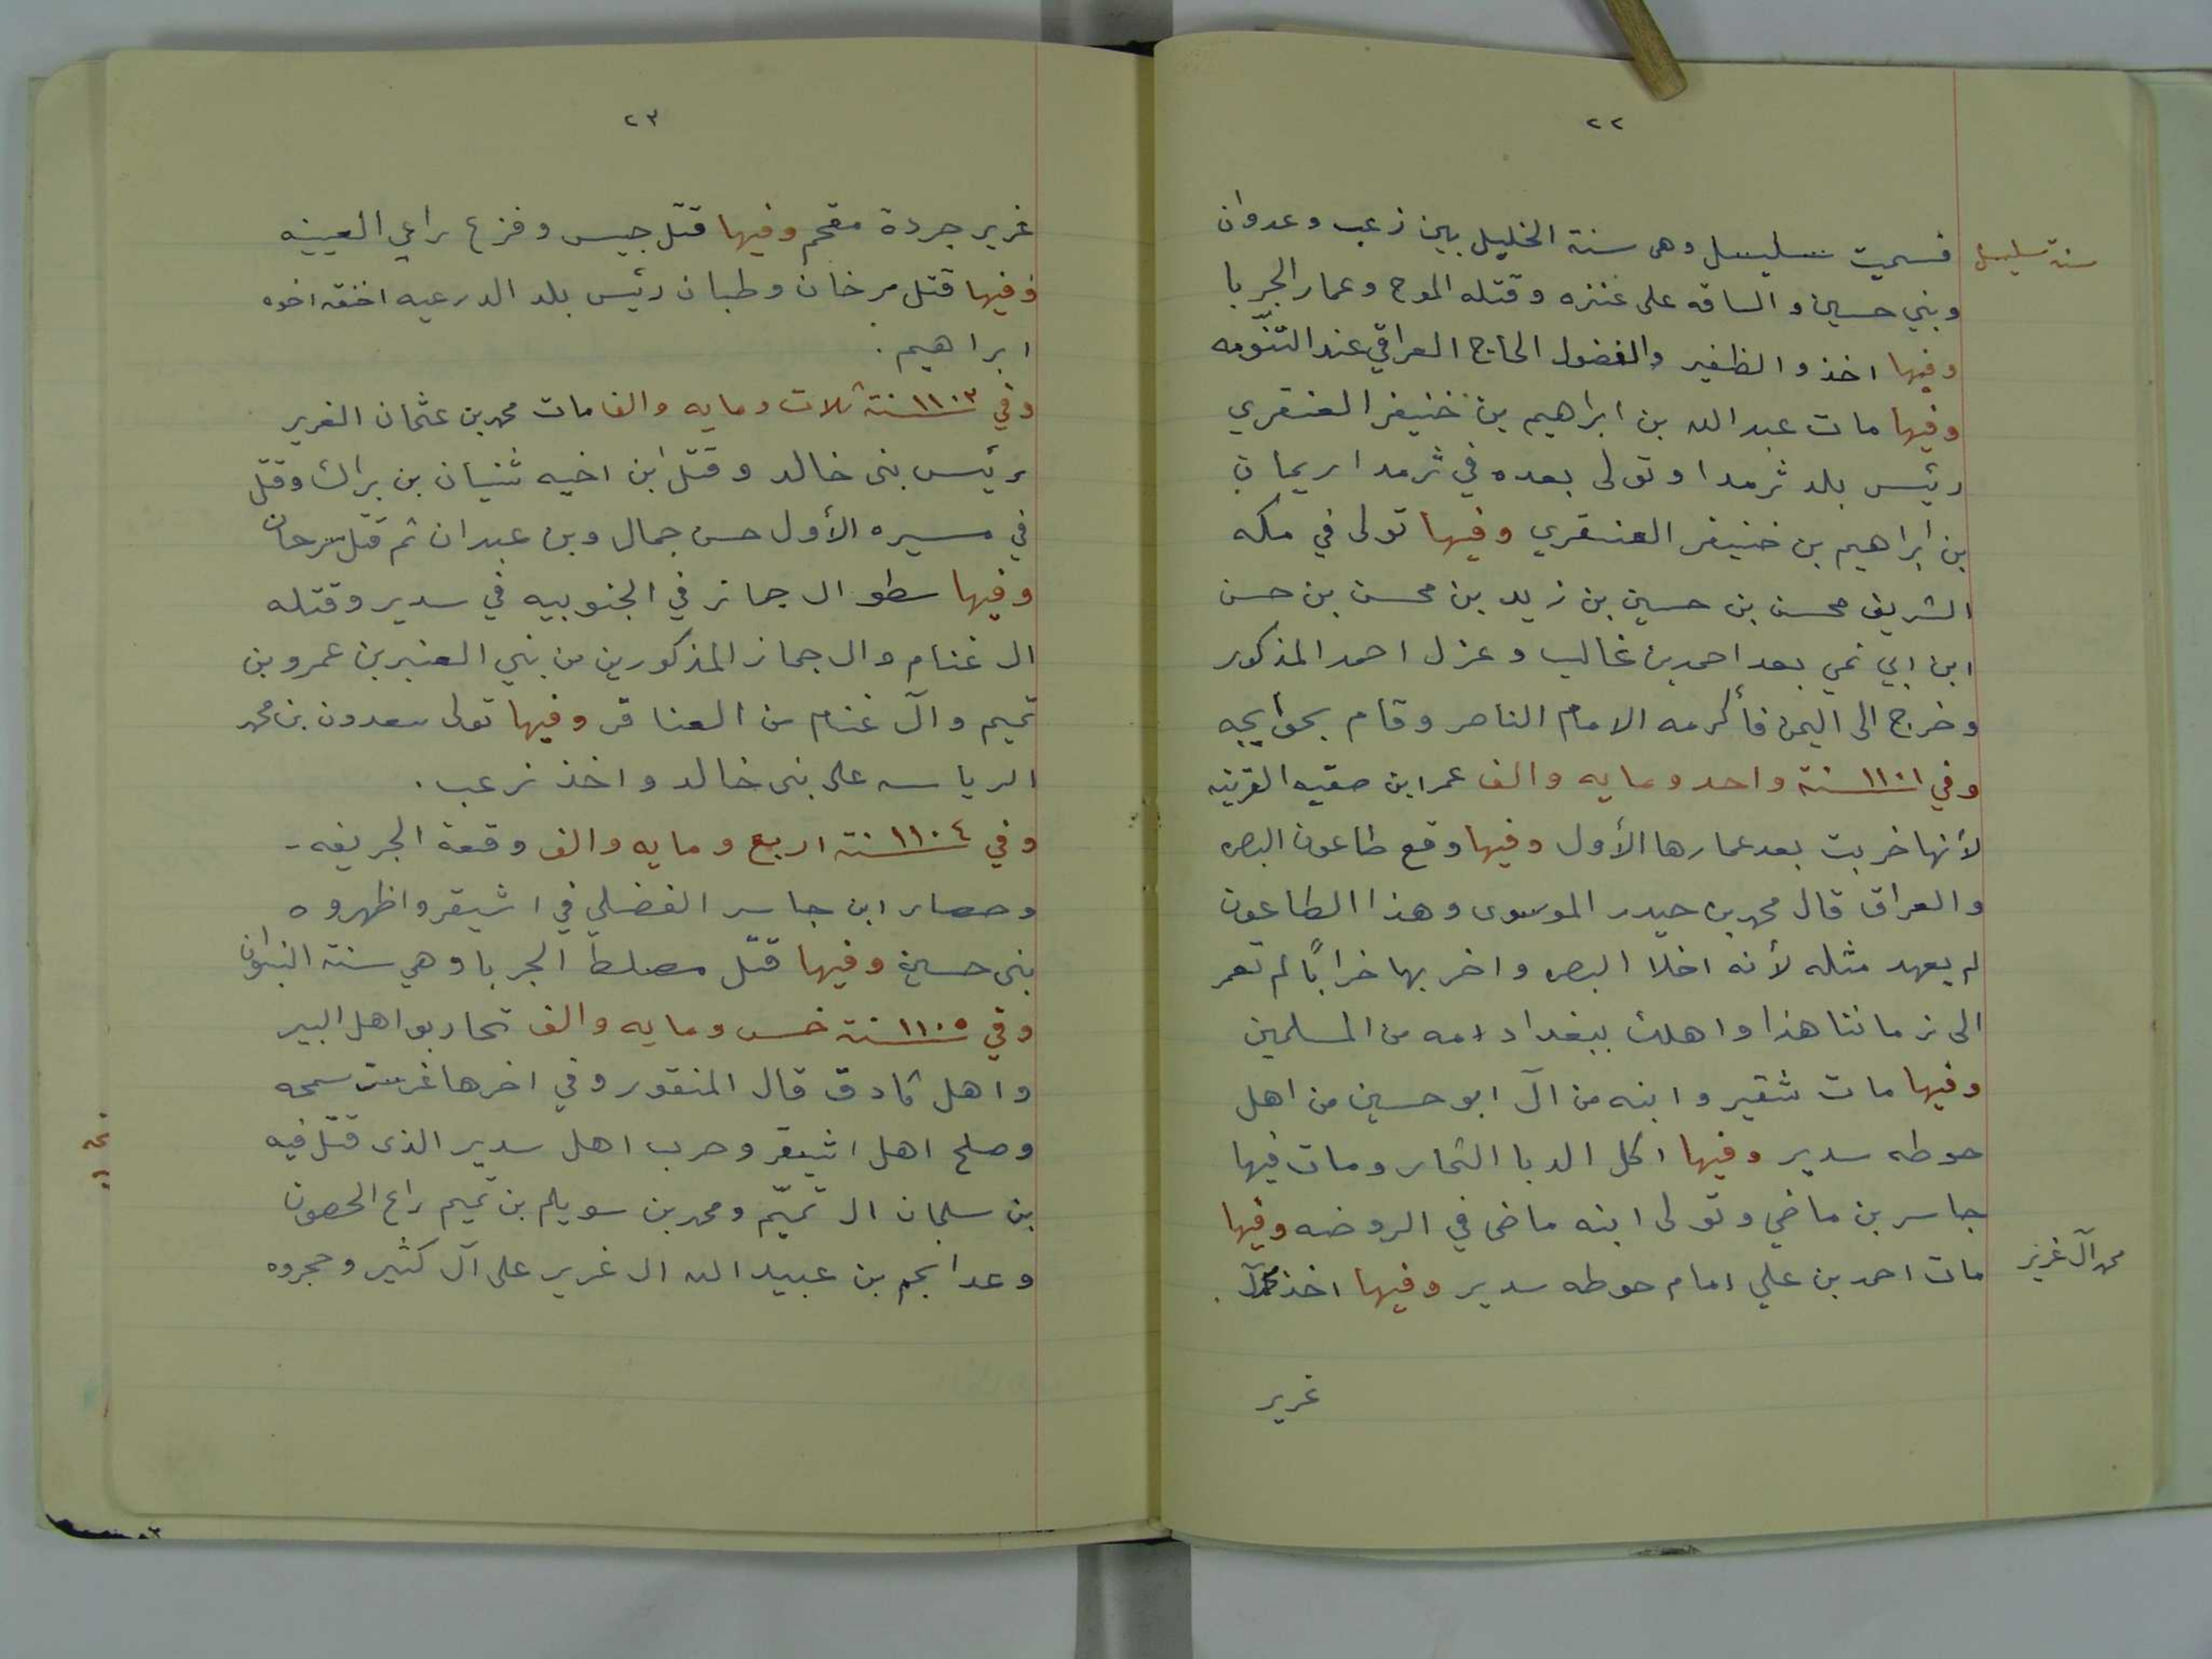 ٢٢
سنة سليسل
فسميت سليسل وهى سنة الخليل بين زعب وعدوان
وبني حسين والساقه على عنزه وقتله الموح وعمار الجربا
وفيها اخذوا الظفير والفضول الحاج العراقي عند التنّومه
وفيها مات عبدالله بن ابراهيم بن خنيفر العنقري
رئيس بلد ثرمدا وتولى بعده في ثرمدا ريمان
بن ابراهيم بن خنيفر العنقري وفيها تولى في مكه
الشريف محسن بن حسين بن زيد بن محسن بن حسن
ابن ابي نمي بعد احمد بن غالب وعزل احمد المذكور
وخرج الى اليمن فأكرمه الامام الناصر وقام بحوايجه
وفي ١١٠١ سنة واحد ومايه والف عمر ابن صقيه القرينه
لأنها خربت بعد عمارها الأول وفيها وقع طاعون البصره
والعراق قال محمد بن حيدر الموسوى وهذا الطاعون
لم يعهد مثله لأنه اخلا البصره واخر بها خرابًا لم تعمر
الى زماننا هذا واهلك ببغداد امه من المسلمين
وفيها مات شقير وابنه من آل ابو حسين من اهل
حوطه سدير وفيها اكل الدبا الثمار ومات فيها
جاسر بن ماضي وتولى ابنه ماضى في الروضه وفيها
مات احمد بن علي امام حوطه سدير وفيها اخذ محمد آل
محمد آل غرير
غرير
٢٣
غرير جردة مقحم وفيها قتل جيس وفزع راعي العيينه
وفيها قتل مرخان وطبان رئيس بلد الدرعيه اخنقه اخوه
ابراهيم.
وفي ١١٠٣ سنة ثلاث ومايه والف مات محمد بن عثمان الغرير
رئيس بنى خالد وقتل ابن اخيه ثنيان بن براك وقتل
في مسيره الأول حسن جمال وبن عبدان ثم قتل سرحان
وفيها سطوا ال جماز في الجنوبيه في سدير وقتله
ال غنام وال جماز المذكورين من بني العنبر بن عمرو بن
تميم وآل غنام من العناقر وفيها تولى سعدون بن محمد
الرياسه على بنى خالد واخذ زعب.
وفي ١١٠٤ سنة اربع ومايه والف وقعة الجريفه -
وحصار ابن جاسر الفضلي في اشيقر واظهروه
بنى حسين وفيها قتل مصلط الجربا وهي سنة النبوان
وفي ١١٠٥ سنة خمس ومايه والف تحاربوا اهل البير
واهل ثادق قال المنقور وفي اخرها غرست سمحه
وصلح اهل اشيقر وحرب اهل سدير الذى قتل فيه
بن سلمان ال تميّم ومحمد بن سويلم بن تميم راع الحصون
وعدا نجم بن عبيدالله ال غرير على آل كثير وحجروه